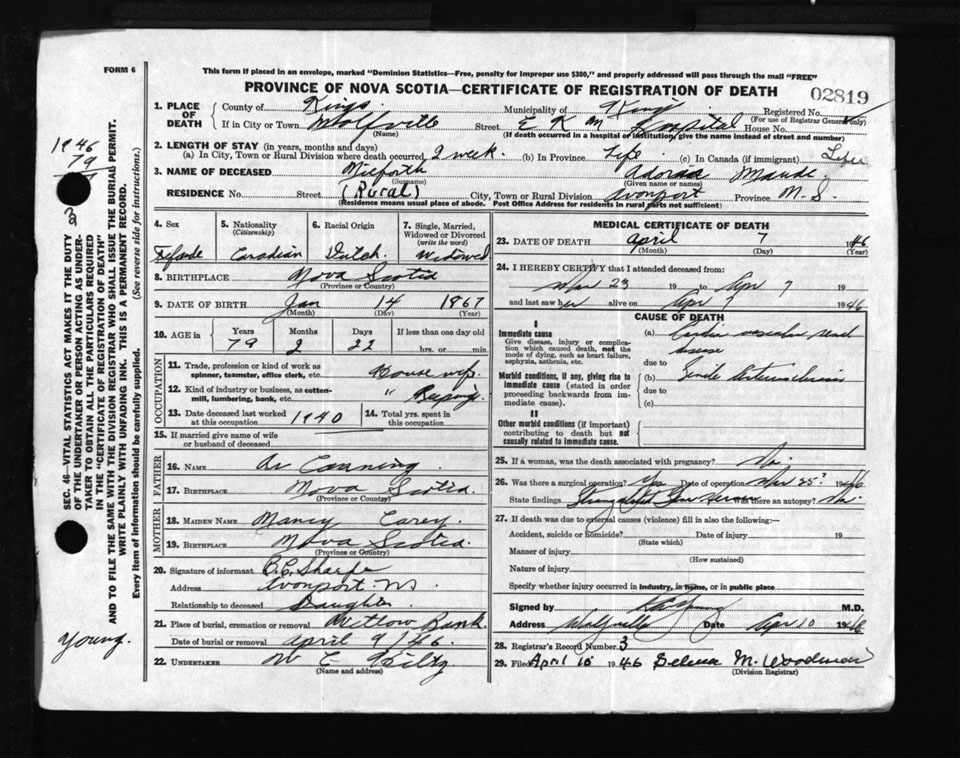 FORM 6
This form if placed in an envelope, marked "Dominion Statistics—Free, penalty for improper use $300," and properly addressed will pass through the mail "FREE"
PROVINCE OF NOVA SCOTIA—CERTIFICATE OF REGISTRATION OF DEATH
02819
1. PLACE OF DEATH
County of Kings Municipality of Kings Registered No.
(For use of Registrar General only)
If in City or Town Wolfville Street E K M Hospital House No.
(Name) (If death occurred in a hospital or institution, give name instead of street and number)
2. LENGTH OF STAY (in years, months and days)
(a) In City, Town or Rural Division where death occurred 2 week. (b) In Province Life (c) In Canada (if immigrant) Life
3. NAME OF DECEASED Maude
(Surname) (Given name or names)
RESIDENCE No. Street (Rural) City, Town or Rural Division Avonport Province N.S.
(Residence means usual place of abode. Post Office Address for residents in rural parts not sufficient)
4. Sex 5. Nationality (Citizenship) 6. Racial Origin 7. Single, Married, Widowed or Divorced (write the word)
Female Canadian Dutch Widowed
8. BIRTHPLACE Nova Scotia
(Province or Country)
9. DATE OF BIRTH Jan 14 1867
(Month) (Day) (Year)
10. AGE in Years Months Days If less than one day old
79 2 22 hrs. or min.
OCCUPATION
11. Trade, profession or kind of work as spinner, teamster, office clerk, etc. House wife.
12. Kind of industry or business, as cotton-mill, lumbering, bank, etc. " Keeping.
13. Date deceased last worked at this occupation 1940 14. Total yrs. spent in this occupation
15. If married give name of wife or husband of deceased
FATHER
16. NAME Canning
17. BIRTHPLACE Nova Scotia.
(Province or Country)
MOTHER
18. MAIDEN NAME Nancy Carey.
19. BIRTHPLACE Nova Scotia.
(Province or Country)
20. Signature of informant B.C. Sharpe
Address Avonport NS
Relationship to deceased Daughter
21. Place of burial, cremation or removal Willow Bank.
Date of burial or removal April 9 / 46
22. UNDERTAKER W C
(Name and address)
MEDICAL CERTIFICATE OF DEATH
23. DATE OF DEATH April 7 1946
(Month) (Day) (Year)
24. I HEREBY CERTIFY that I attended deceased from:
Mar 23 19 to Apr 7 19
and last saw her alive on Apr 7 1946
CAUSE OF DEATH
I
Immediate cause
Give disease, injury or complication which caused death, not the mode of dying, such as heart failure, asphyxia, asthenia, etc.
(a) Cardio vascular renal disease
due to
Morbid conditions, if any, giving rise to immediate cause (stated in order proceeding backwards from immediate cause).
(b) Senile Arteriosclerosis
due to
(c)
II
Other morbid conditions (if important) contributing to death but not causally related to immediate cause.
25. If a woman, was the death associated with pregnancy? No.
26. Was there a surgical operation? Yes Date of operation Mar 25? 1946
State findings Strangulated Hernia Was there an autopsy? No
27. If death was due to external causes (violence) fill in also the following:—
Accident, suicide or homicide? Date of injury 19
(State which)
Manner of injury
(How sustained)
Nature of injury
Specify whether injury occurred in industry, in home, or in public place
Signed by M.D.
Address Wolfville Date Apr 10 1946
28. Registrar's Record Number 3
29. Filed April 10 1946 Selena M. Woodman
(Division Registrar)
1946
79
3
SEC. 46—VITAL STATISTICS ACT MAKES IT THE DUTY
OF THE UNDERTAKER OR PERSON ACTING AS UNDER-
TAKER TO OBTAIN ALL THE PARTICULARS REQUIRED
IN THE "CERTIFICATE OF REGISTRATION OF DEATH"
AND TO FILE THE SAME WITH THE DIVISION REGISTRAR WHO SHALL ISSUE THE BURIAL PERMIT.
WRITE PLAINLY WITH UNFADING INK. THIS IS A PERMANENT RECORD.
Every item of information should be carefully supplied. (See reverse side for instructions.)
Young.